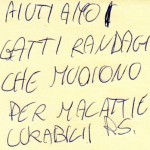 AIUTIAMO I
GATTI RANDAGI
CHE MUOIONO
PER MALATTIE
CURABILI RS.